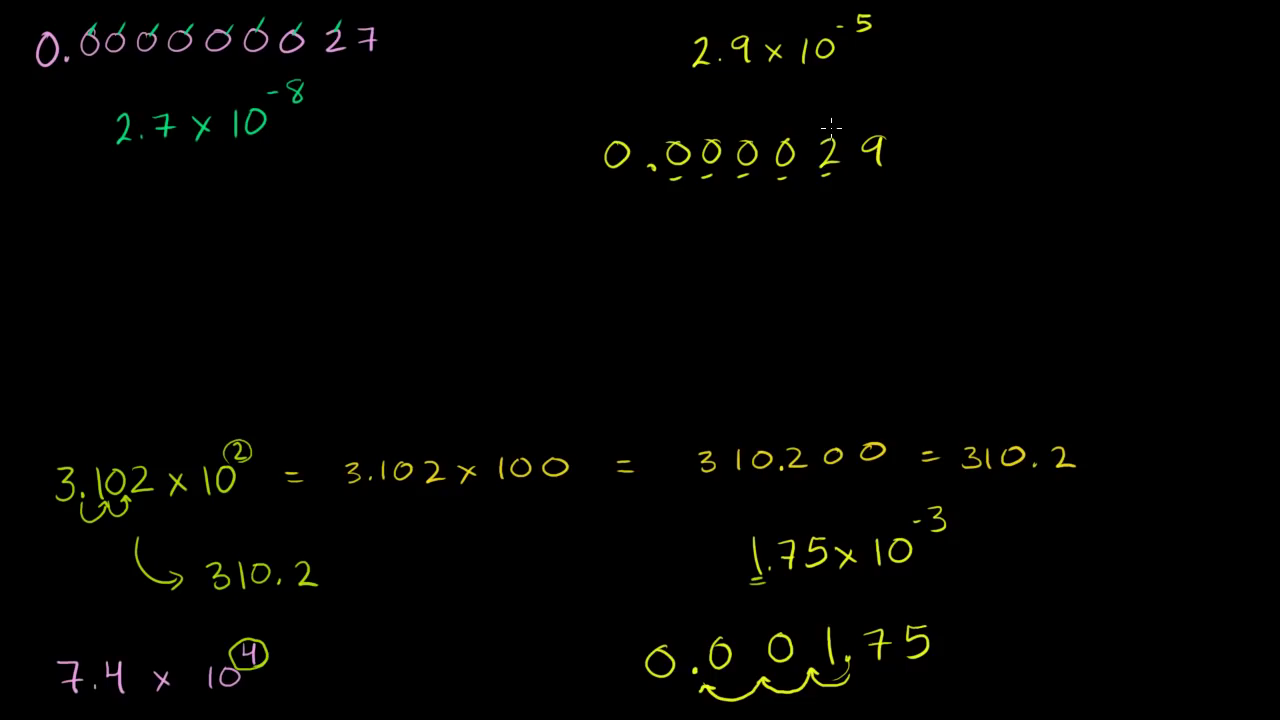 0.000000027
2.9 × 10⁻⁵
2.7 × 10⁻⁸
0.000029
3.102 × 10² = 3.102 × 100 = 310.200 = 310.2
310.2
1.75 × 10⁻³
0.001.75
7.4 × 10⁴